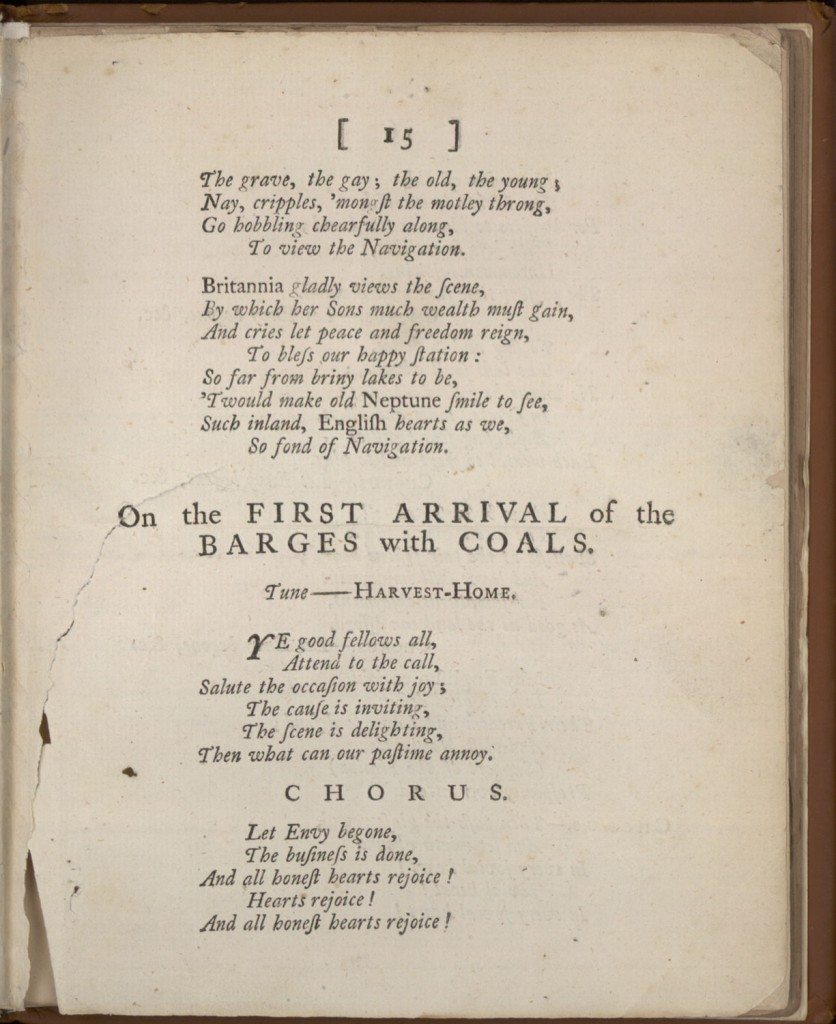 [ 15 ]
The grave, the gay; the old, the young;
Nay, cripples, 'mongſt the motley throng,
Go hobbling chearfully along,
To view the Navigation.
Britannia gladly views the ſcene,
By which her Sons much wealth muſt gain,
And cries let peace and freedom reign,
To bleſs our happy ſtation:
So far from briny lakes to be,
'Twould make old Neptune ſmile to ſee,
Such inland, Engliſh hearts as we,
So fond of Navigation.
On the FIRST ARRIVAL of the
BARGES with COALS.
Tune——HARVEST-HOME.
YE good fellows all,
Attend to the call,
Salute the occaſion with joy;
The cauſe is inviting,
The ſcene is delighting,
Then what can our paſtime annoy.
CHORUS.
Let Envy begone,
The buſineſs is done,
And all honeſt hearts rejoice!
Hearts rejoice!
And all honeſt hearts rejoice!